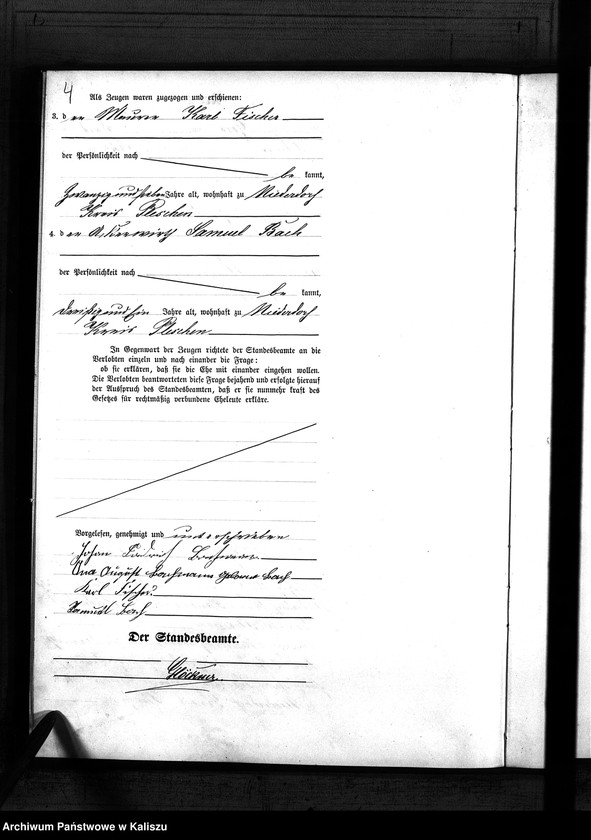 4
Als Zeugen waren zugezogen und erschienen:
3. der Maurer Karl Fischer
der Persönlichkeit nach
be kannt,
zwanzig und sieben Jahre alt, wohnhaft zu Niederdorf
Kreis Pleschen
4. der Ackerwirth Samuel Bach
der Persönlichkeit nach
be kannt,
dreißig und ein Jahre alt, wohnhaft zu Niederdorf
Kreis Pleschen
In Gegenwart der Zeugen richtete der Standesbeamte an die
Verlobten einzeln und nach einander die Frage:
ob sie erklären, daß sie die Ehe mit einander eingehen wollen.
Die Verlobten beantworteten diese Frage bejahend und erfolgte hierauf
der Ausspruch des Standesbeamten, daß er sie nunmehr kraft des
Gesetzes für rechtmäßig verbundene Eheleute erkläre.
Vorgelesen, genehmigt und unterschrieben
Johan Bachmann
August Bachmann geborne Bach
Karl Fischer
Samuel Bach
Der Standesbeamte.
Glöckner
Archiwum Państwowe w Kaliszu